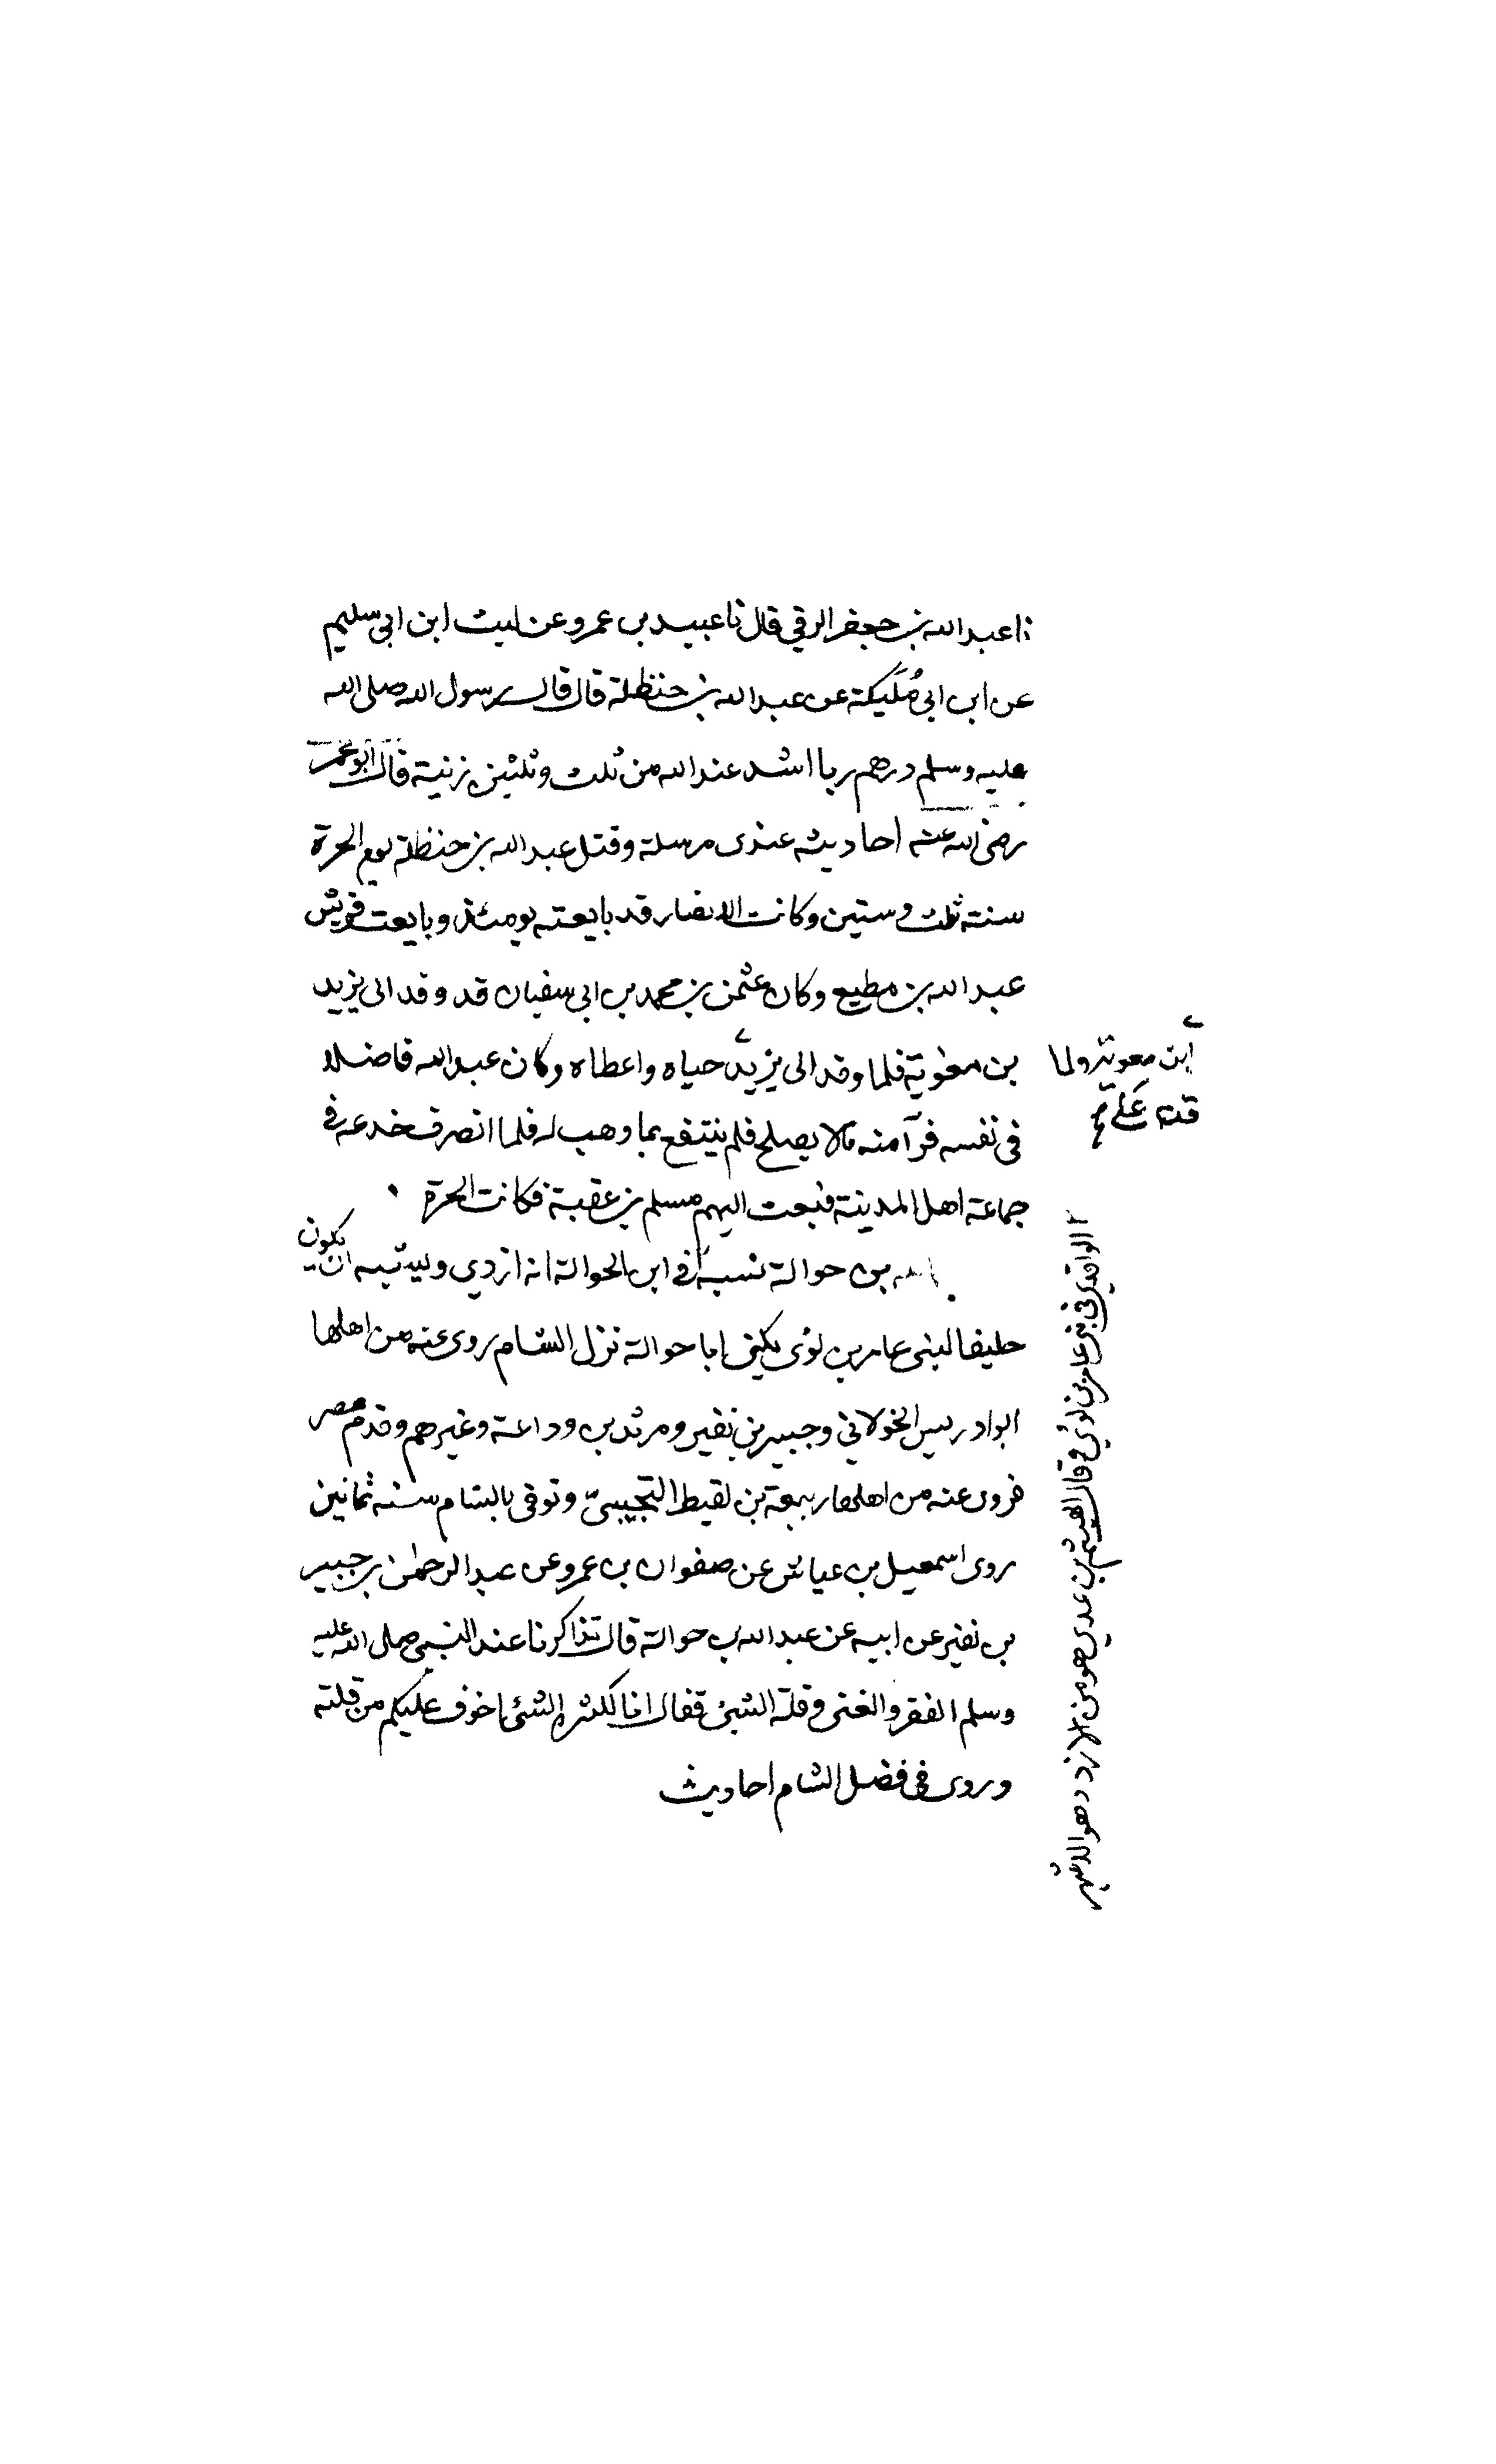 نا عبد الله بن جعفر الرقي قال نا عبيد بن عمرو عن ليث ابن ابي سليم
عن ابن ابي مُلَيكة عن عبد الله بن حنظلة قال قال رسول الله صلى الله
عليه وسلم درهم ربا اشد عند الله من ثلث وثلثين زنية قال ابو عمر
رضى الله عنه احاديثه عندى مرسلة وقتل عبد الله بن حنظلة يوم الحرة
سنة ثلث وستين وكانت الانصار قد بايعته يومئذ وبايعت قريش
عبد الله بن مطيع وكان عثمن بن محمد بن ابي سفيان قد وفد الى يزيد
بن معوية فلما وفد الى يزيد حباه واعطاه وكان عبد الله فاضلا
في نفسه فرآ منه مالا يصلح فلم ينتفع بما وهب له فلما انصرف خلعه في
جماعة اهل المدينة فبعث اليهم مسلم بن عقبة فكانت الحرة
بن حوالة نسبه في ابن الحوالة انه ازدي ويشبه ان يكون
حليفا لبنى عامر بن لؤى يكنى ابا حوالة نزل الشام روى عنه من اهلها
ابو ادريس الخولاني وجبير بن نفير ومرثد بن وداعة وغيرهم وقدم مصر
فروى عنه من اهلها ربيعة بن لقيط التجيبىّ وتوفى بالشام سنه ثمانين
روى اسمعيل بن عياش عن صفوان بن عمرو عن عبد الرحمٰن بن جبير
بن نفير عن ابيه عن عبد الله بن حوالة قال تذاكرنا عند النبي صلى الله عليه
وسلم الفقر والغنى وقلة الشئ فقال انا لكثرة الشئ اخوف عليكم من قلته
وروى في فضل الشام احاديث
ابن معوية ولما
قدم على
الواقدي في بني عامر بن لؤي وقال الهيثم بن عدي هو من الازد وهو الاشهر